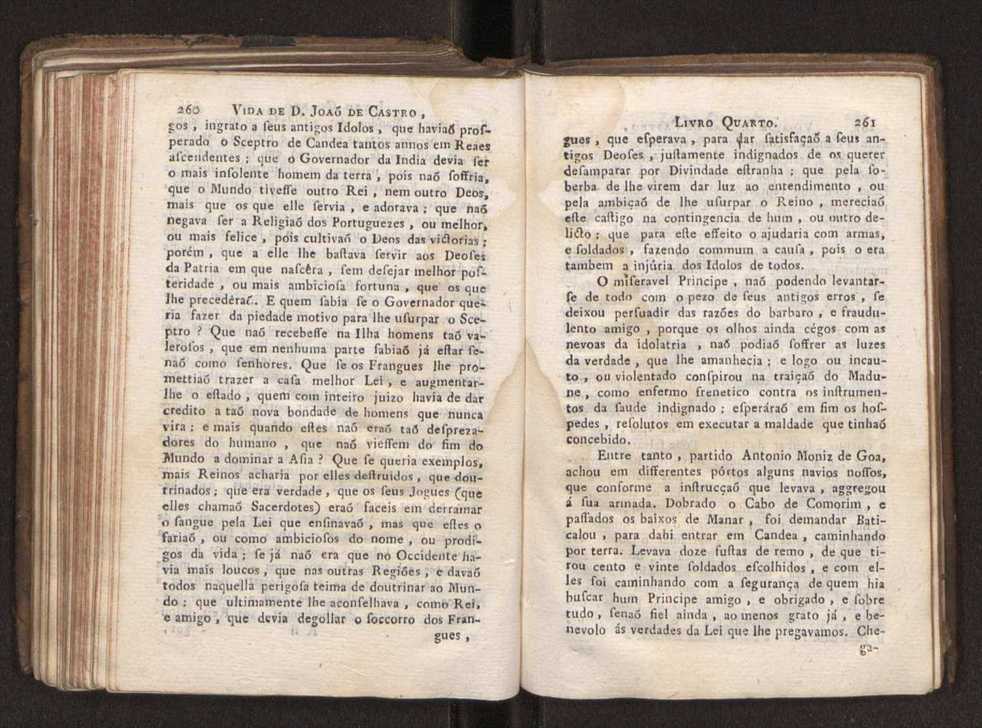 260 VIDA DE D. JOAÕ DE CASTRO ,
gos , ingrato a ſeus antigos Idolos , que haviaõ proſ-
perado o Sceptro de Candea tantos annos em Reaes
aſcendentes ; que o Governador da India devia ſer
o mais inſolente homem da terra , pois naõ ſoffria,
que o Mundo tiveſſe outro Rei , nem outro Deos,
mais que os que elle ſervia , e adorava ; que naõ
negava ſer a Religiaõ dos Portuguezes , ou melhor,
ou mais felice , pois cultivaõ o Deos das victorias ;
porém , que a elle lhe baſtava ſervir aos Deoſes
da Patria em que naſcêra , ſem deſejar melhor poſ-
teridade , ou mais ambicioſa fortuna , que os que
lhe precedéraõ. E quem ſabia ſe o Governador que-
ria fazer da piedade motivo para lhe uſurpar o Sce-
ptro ? Que naõ recebeſſe na Ilha homens taõ va-
leroſos , que em nenhuma parte ſabiaõ já eſtar ſe-
naõ como ſenhores. Que ſe os Frangues lhe pro-
mettiaõ trazer a caſa melhor Lei , e augmentar-
lhe o eſtado , quem com inteiro juizo havia de dar
credito a taõ nova bondade de homens que nunca
vira ; e mais quando eſtes naõ eraõ taõ deſpreza-
dores do humano , que naõ vieſſem do fim do
Mundo a dominar a Aſia ? Que ſe queria exemplos,
mais Reinos acharia por elles deſtruidos , que dou-
trinados ; que era verdade , que os ſeus Jogues (que
elles chamaõ Sacerdotes) eraõ faceis em derramar
o ſangue pela Lei que enſinavaõ , mas que eſtes o
fariaõ , ou como ambicioſos do nome , ou prodi-
gos da vida ; ſe já naõ era que no Occidente ha-
via mais loucos , que nas outras Regiões , e davaõ
todos naquella perigoſa teima de doutrinar ao Mun-
do ; que ultimamente lhe aconſelhava , como Rei,
e amigo , que devia degollar o ſoccorro dos Fran-
gues ,
LIVRO QUARTO. 261
gues , que eſperava , para dar ſatisfaçaõ a ſeus an-
tigos Deoſes , juſtamente indignados de os querer
deſamparar por Divindade eſtranha ; que pela ſo-
berba de lhe virem dar luz ao entendimento , ou
pela ambiçaõ de lhe uſurpar o Reino , mereciaõ
eſte caſtigo na contingencia de hum , ou outro de-
licto ; que para eſte effeito o ajudaria com armas,
e ſoldados , fazendo commum a cauſa , pois o era
tambem a injúria dos Idolos de todos.
O miſeravel Principe , naõ podendo levantar-
ſe de todo com o pezo de ſeus antigos erros , ſe
deixou perſuadir das razões do barbaro , e fraudu-
lento amigo , porque os olhos ainda cégos com as
nevoas da idolatria , naõ podiaõ ſoffrer as luzes
da verdade , que lhe amanhecia ; e logo ou incau-
to , ou violentado conſpirou na traiçaõ do Madu-
ne , como enfermo frenetico contra os inſtrumen-
tos da ſaude indignado ; eſperáraõ em fim os hoſ-
pedes , reſolutos em executar a maldade que tinhaõ
concebido.
Entre tanto , partido Antonio Moniz de Goa,
achou em differentes pórtos alguns navios noſſos,
que conforme a inſtrucçaõ que levava , aggregou
á ſua armada. Dobrado o Cabo de Comorim , e
paſſados os baixos de Manar , foi demandar Bati-
calou , para dahi entrar em Candea , caminhando
por terra. Levava doze fuſtas de remo , de que ti-
rou cento e vinte ſoldados eſcolhidos , e com el-
les foi caminhando com a ſegurança de quem hia
buſcar hum Principe amigo , e obrigado , e ſobre
tudo , ſenaõ fiel ainda , ao menos grato já , e be-
nevolo ás verdades da Lei que lhe pregavamos. Che-
ga-